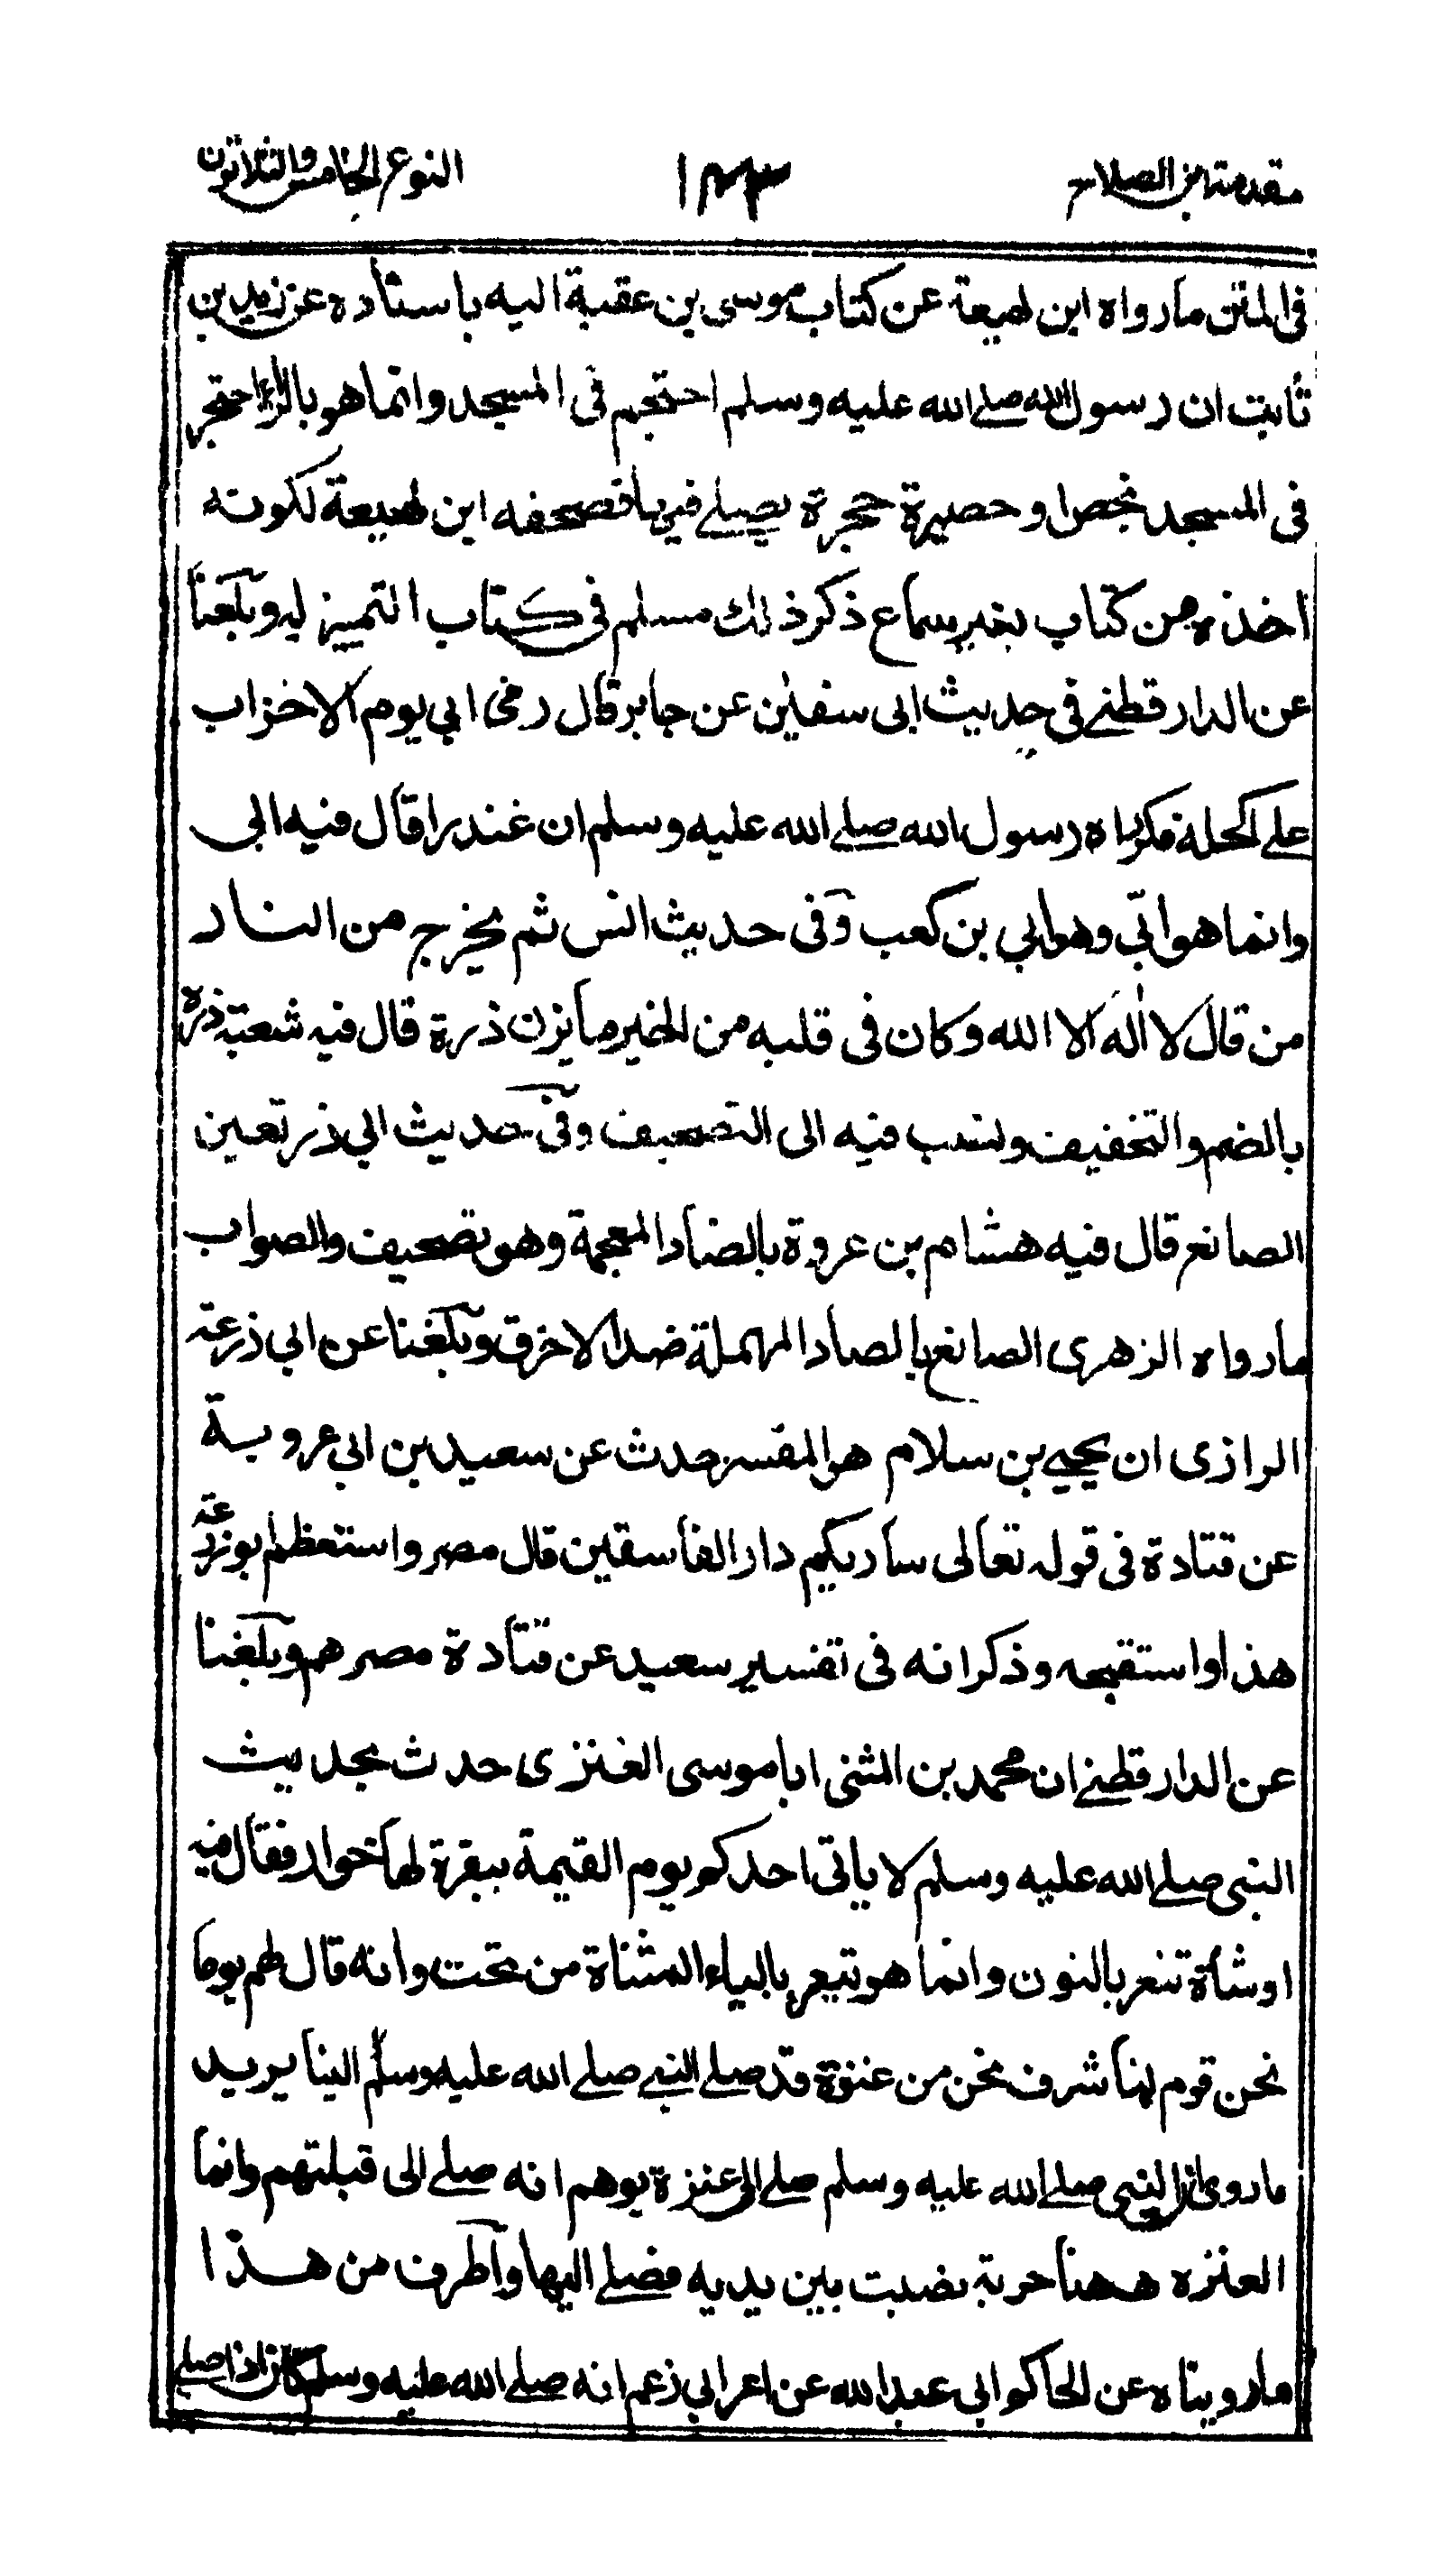 مقدمة ابن الصلاح ١٤٣ النوع الخامس والثلاثون
فى المتن مارواه ابن لهيعة عن كتاب موسى بن عقبة اليه باسناده عن زيد بن
ثابت ان رسول الله صلے الله عليه وسلم احتجم فى المسجد وانما هو بالراء احتجر
فى المسجد بخص او حصيرة حجرة يصلے فيها فصحفه ابن لهيعة لكونه
اخذه من كتاب بغير سماع ذكر ذلك مسلم فى كتاب التمييز له وبلغنا
عن الدارقطنے فى حديث ابى سفين عن جابر قال رمى ابي يوم الاحزاب
علے اكحله فكواه رسول الله صلے الله عليه وسلم ان غندرا قال فيه ابى
وانما هو ابّي وهو ابي بن كعب وفى حديث انس ثم يخرج من النار
من قال لا اله الا الله وكان فى قلبه من الخير ما يزن ذرة قال فيه شعبة ذرة
بالضم والتخفيف ونسب فيه الى التصحيف وفى حديث ابي ذر تعين
الصانع قال فيه هشام بن عروة بالضاد المعجمة وهو تصحيف والصواب
مارواه الزهرى الصانع بالصاد المهملة ضد الاخرق وبلغنا عن ابي زرعة
الرازى ان يحيے بن سلام هو المفسر حدث عن سعيد بن ابى عروبة
عن قتادة فى قوله تعالى ساريكم دار الفاسقين قال مصر واستعظم ابو زرعة
هذا واستقبحه وذكر انه فى تفسير سعيد عن قتادة مصرهم وبلغنا
عن الدارقطنے ان محمد بن المثنى ابا موسى العنزى حدث بحديث
النبى صلے الله عليه وسلم لا ياتى احدكم يوم القيمة ببقرة لها خوار فقال فيه
او شاة تنعر بالنون وانما هو تيعر بالياء المثناة من تحت وانه قال لهم يوما
نحن قوم لنا شرف نحن من عنزة قد صلے النبے صلے الله عليه وسلم الينا يريد
ماروى ان النبى صلے الله عليه وسلم صلے الى عنزة يوهم انه صلے الى قبلتهم وانما
العنزه ههنا حربة نصبت بين يديه فصلے اليها واطرف من هذا
ما رويناه عن الحاكم ابى عبد الله عن اعرابي زعم انه صلے الله عليه وسلم كان اذا صلے